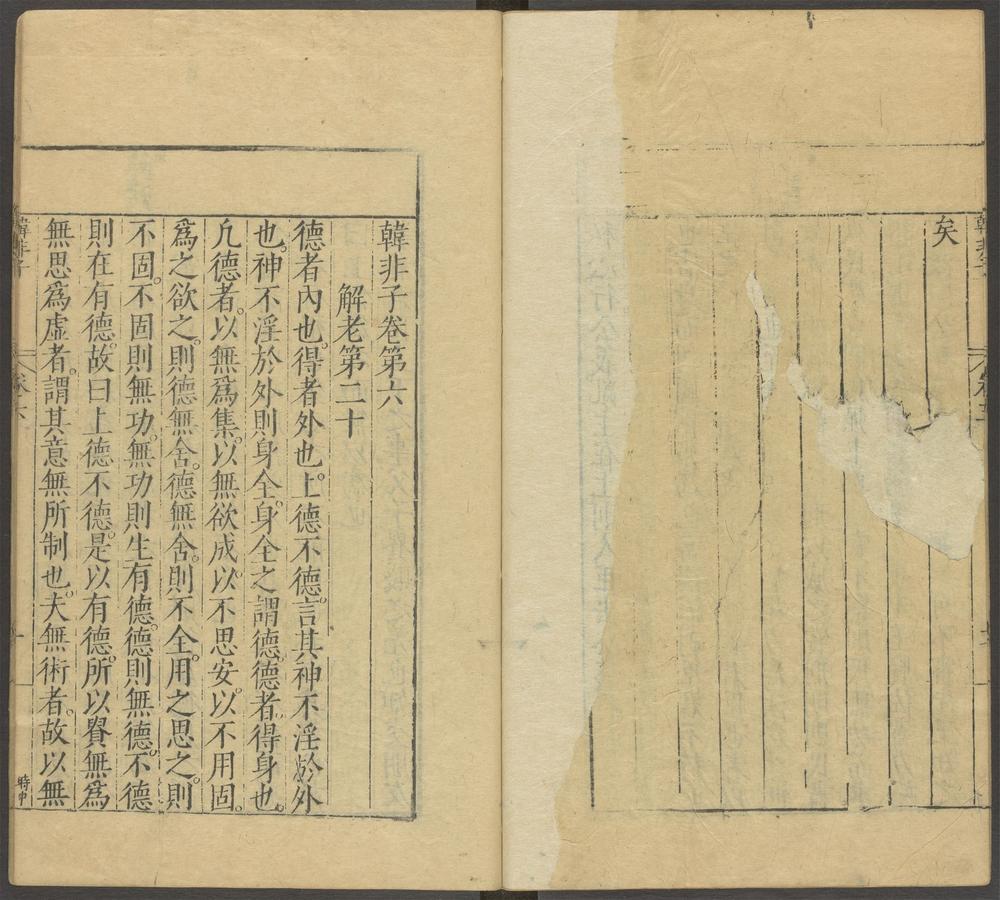 矣
韓非子卷第六
解老第二十
德者內也。得者外也。上德不德。言其神不淫於外
也。神不淫於外則身全。身全之謂德。德者得身也。
凢德者。以無爲集。以無欲成。以不思安。以不用固。
爲之欲之。則德無舍。德無舍。則不全。用之思之。則
不固。不固則無功。無功則生有德。德則無德。不德
則在有德。故曰上德不德。是以有德。所以貴無爲
無思爲虛者。謂其意無所制也。夫無術者。故以無
韓非子
卷六
時中